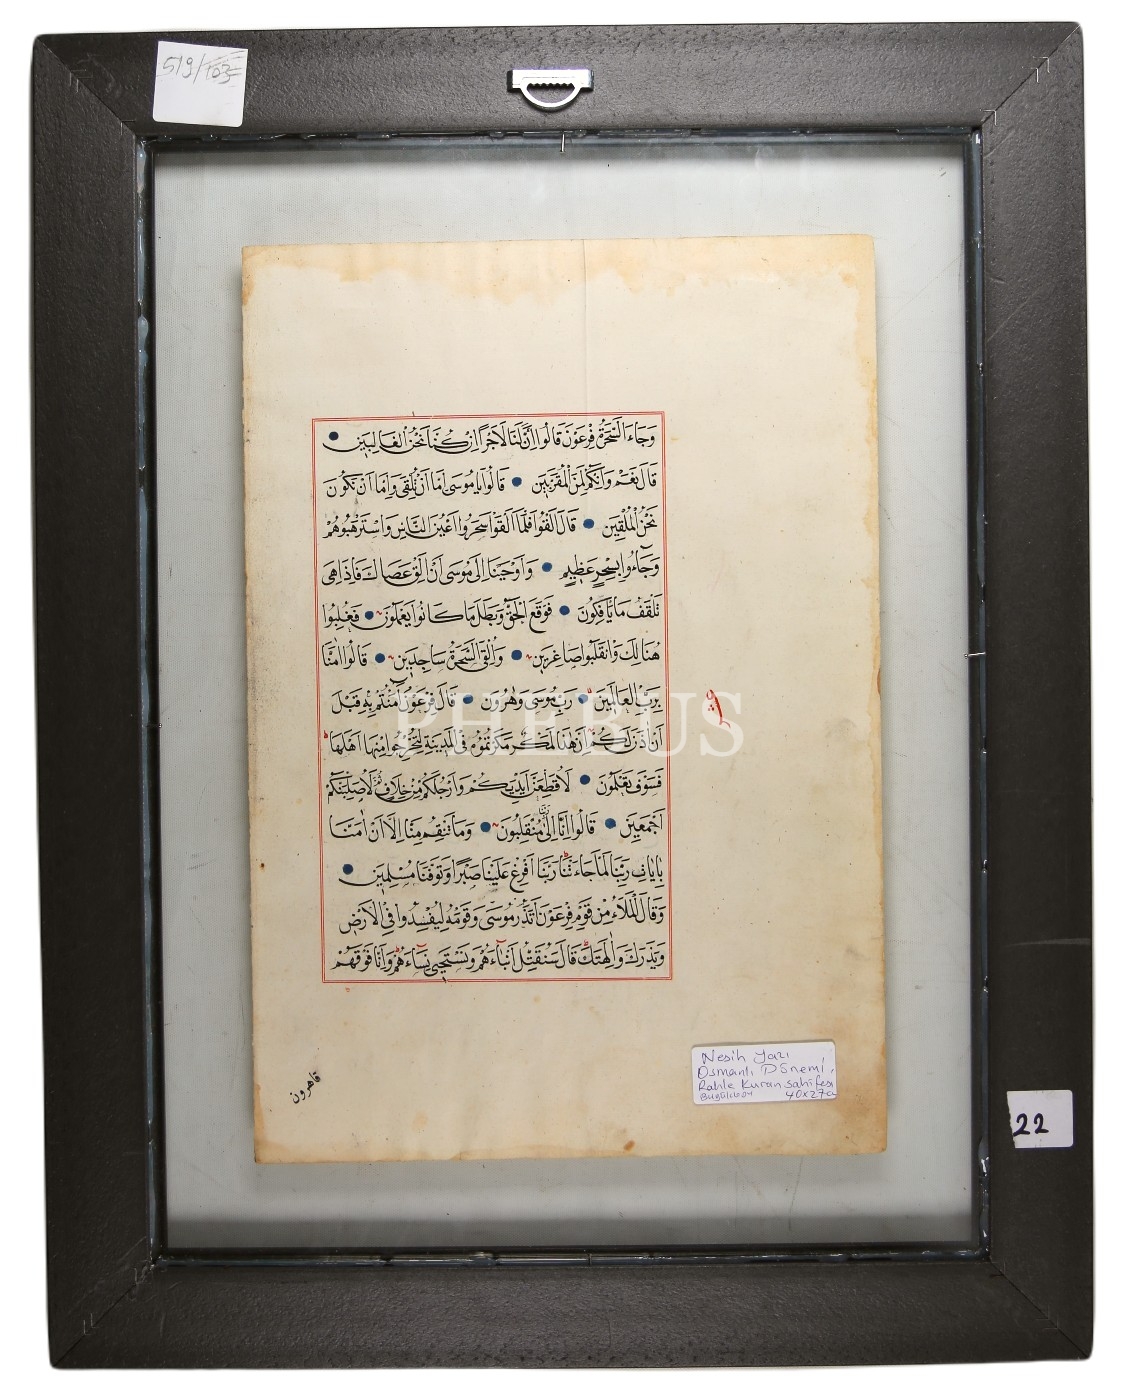 519/103
وَجَاءَ السَّحَرَةُ فِرْعَوْنَ قَالُوا اِنَّ لَنَا لَاَجْرًا اِنْ كُنَّا نَحْنُ الْغَالِبِينَ
قَالَ نَعَمْ وَاِنَّكُمْ لَمِنَ الْمُقَرَّبِينَ قَالُوا يَا مُوسَى اِمَّا اَنْ تُلْقِىَ وَاِمَّا اَنْ نَكُونَ
نَحْنُ الْمُلْقِينَ قَالَ اَلْقُوا فَلَمَّا اَلْقَوْا سَحَرُوا اَعْيُنَ النَّاسِ وَاسْتَرْهَبُوهُمْ
وَجَاءُوا بِسِحْرٍ عَظِيمٍ وَاَوْحَيْنَا اِلَى مُوسَى اَنْ اَلْقِ عَصَاكَ فَاِذَا هِىَ
تَلْقَفُ مَا يَاْفِكُونَ فَوَقَعَ الْحَقُّ وَبَطَلَ مَا كَانُوا يَعْمَلُونَ فَغُلِبُوا
هُنَالِكَ وَانْقَلَبُوا صَاغِرِينَ وَاُلْقِىَ السَّحَرَةُ سَاجِدِينَ قَالُوا اٰمَنَّا
بِرَبِّ الْعَالَمِينَ رَبِّ مُوسَى وَهٰرُونَ قَالَ فِرْعَوْنُ اٰمَنْتُمْ بِهِ قَبْلَ
اَنْ اٰذَنَ لَكُمْ اِنَّ هٰذَا لَمَكْرٌ مَكَرْتُمُوهُ فِى الْمَدِينَةِ لِتُخْرِجُوا مِنْهَا اَهْلَهَا
فَسَوْفَ تَعْلَمُونَ لَاُقَطِّعَنَّ اَيْدِيَكُمْ وَاَرْجُلَكُمْ مِنْ خِلَافٍ ثُمَّ لَاُصَلِّبَنَّكُمْ
اَجْمَعِينَ قَالُوا اِنَّا اِلَى رَبِّنَا مُنْقَلِبُونَ وَمَا تَنْقِمُ مِنَّا اِلَّا اَنْ اٰمَنَّا
بِاٰيَاتِ رَبِّنَا لَمَّا جَاءَتْنَا رَبَّنَا اَفْرِغْ عَلَيْنَا صَبْرًا وَتَوَفَّنَا مُسْلِمِينَ
وَقَالَ الْمَلَاُ مِنْ قَوْمِ فِرْعَوْنَ اَتَذَرُ مُوسَى وَقَوْمَهُ لِيُفْسِدُوا فِى الْاَرْضِ
وَيَذَرَكَ وَاٰلِهَتَكَ قَالَ سَنُقَتِّلُ اَبْنَاءَهُمْ وَنَسْتَحْيِى نِسَاءَهُمْ وَاِنَّا فَوْقَهُمْ
PHEBUS
قاهرون
Nesih Yazı
Osmanlı Dönemi,
Rahle Kuran sahifesi
40x27cm
22